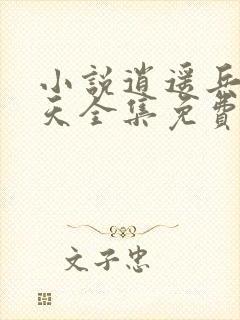 小說逍遥兵
天全集免費
文子忠